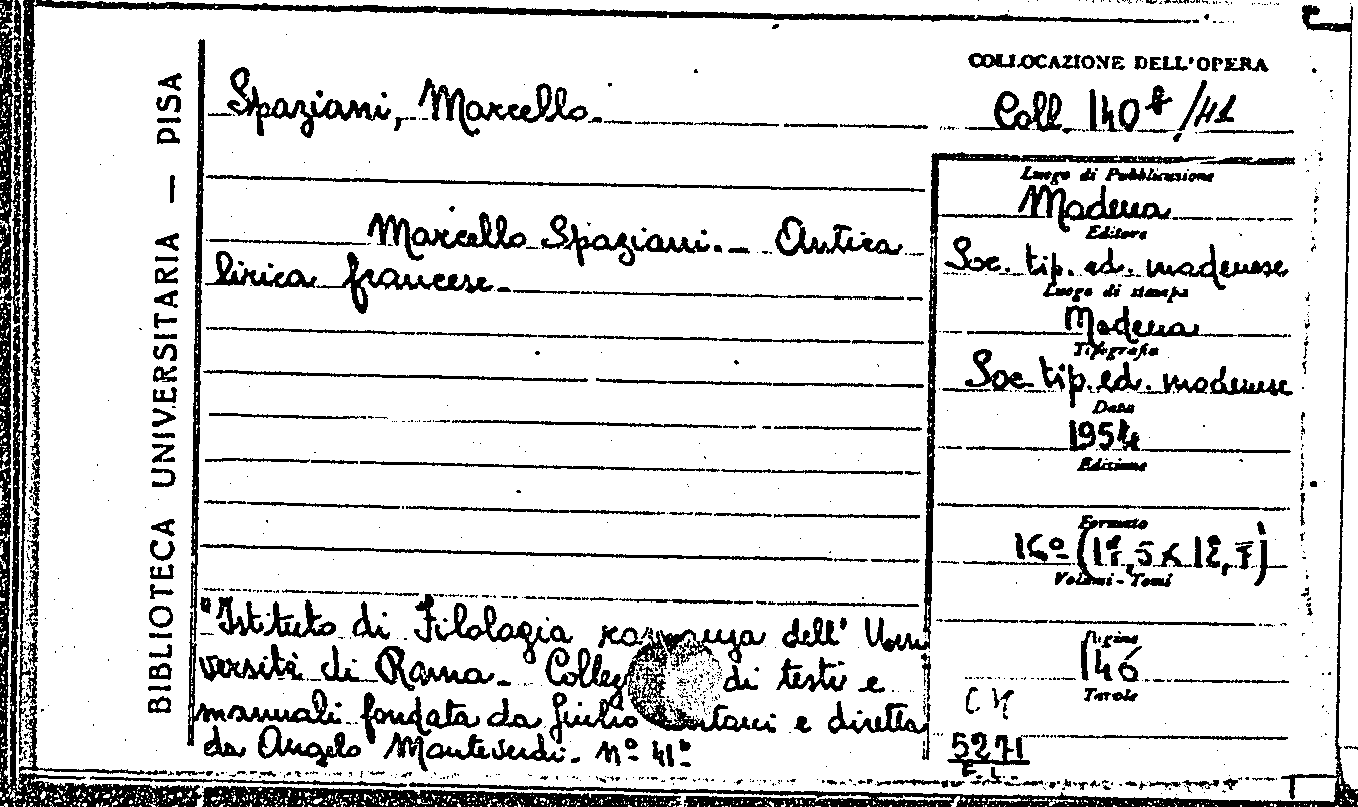 BIBLIOTECA UNIVERSITARIA — PISA
Spaziani, Marcello.
Marcello Spaziani. - Antica
lirica francese. -
"Istituto di Filologia romanza dell' Uni
versità di Roma. - Collez di testi e
manuali fondata da Giulio Bertoni e diretta
da Angelo Monteverdi. - nº 41"
COLLOCAZIONE DELL'OPERA
Coll. 140 b /41
Luogo di Pubblicazione
Modena
Editore
Soc. tip. ed. modenese
Luogo di stampa
Modena
Tipografia
Soc. tip. ed. modenese
Data
1954
Edizione
Formato
16º
Volumi - Tomi
Pagine
146
Tavole
5271